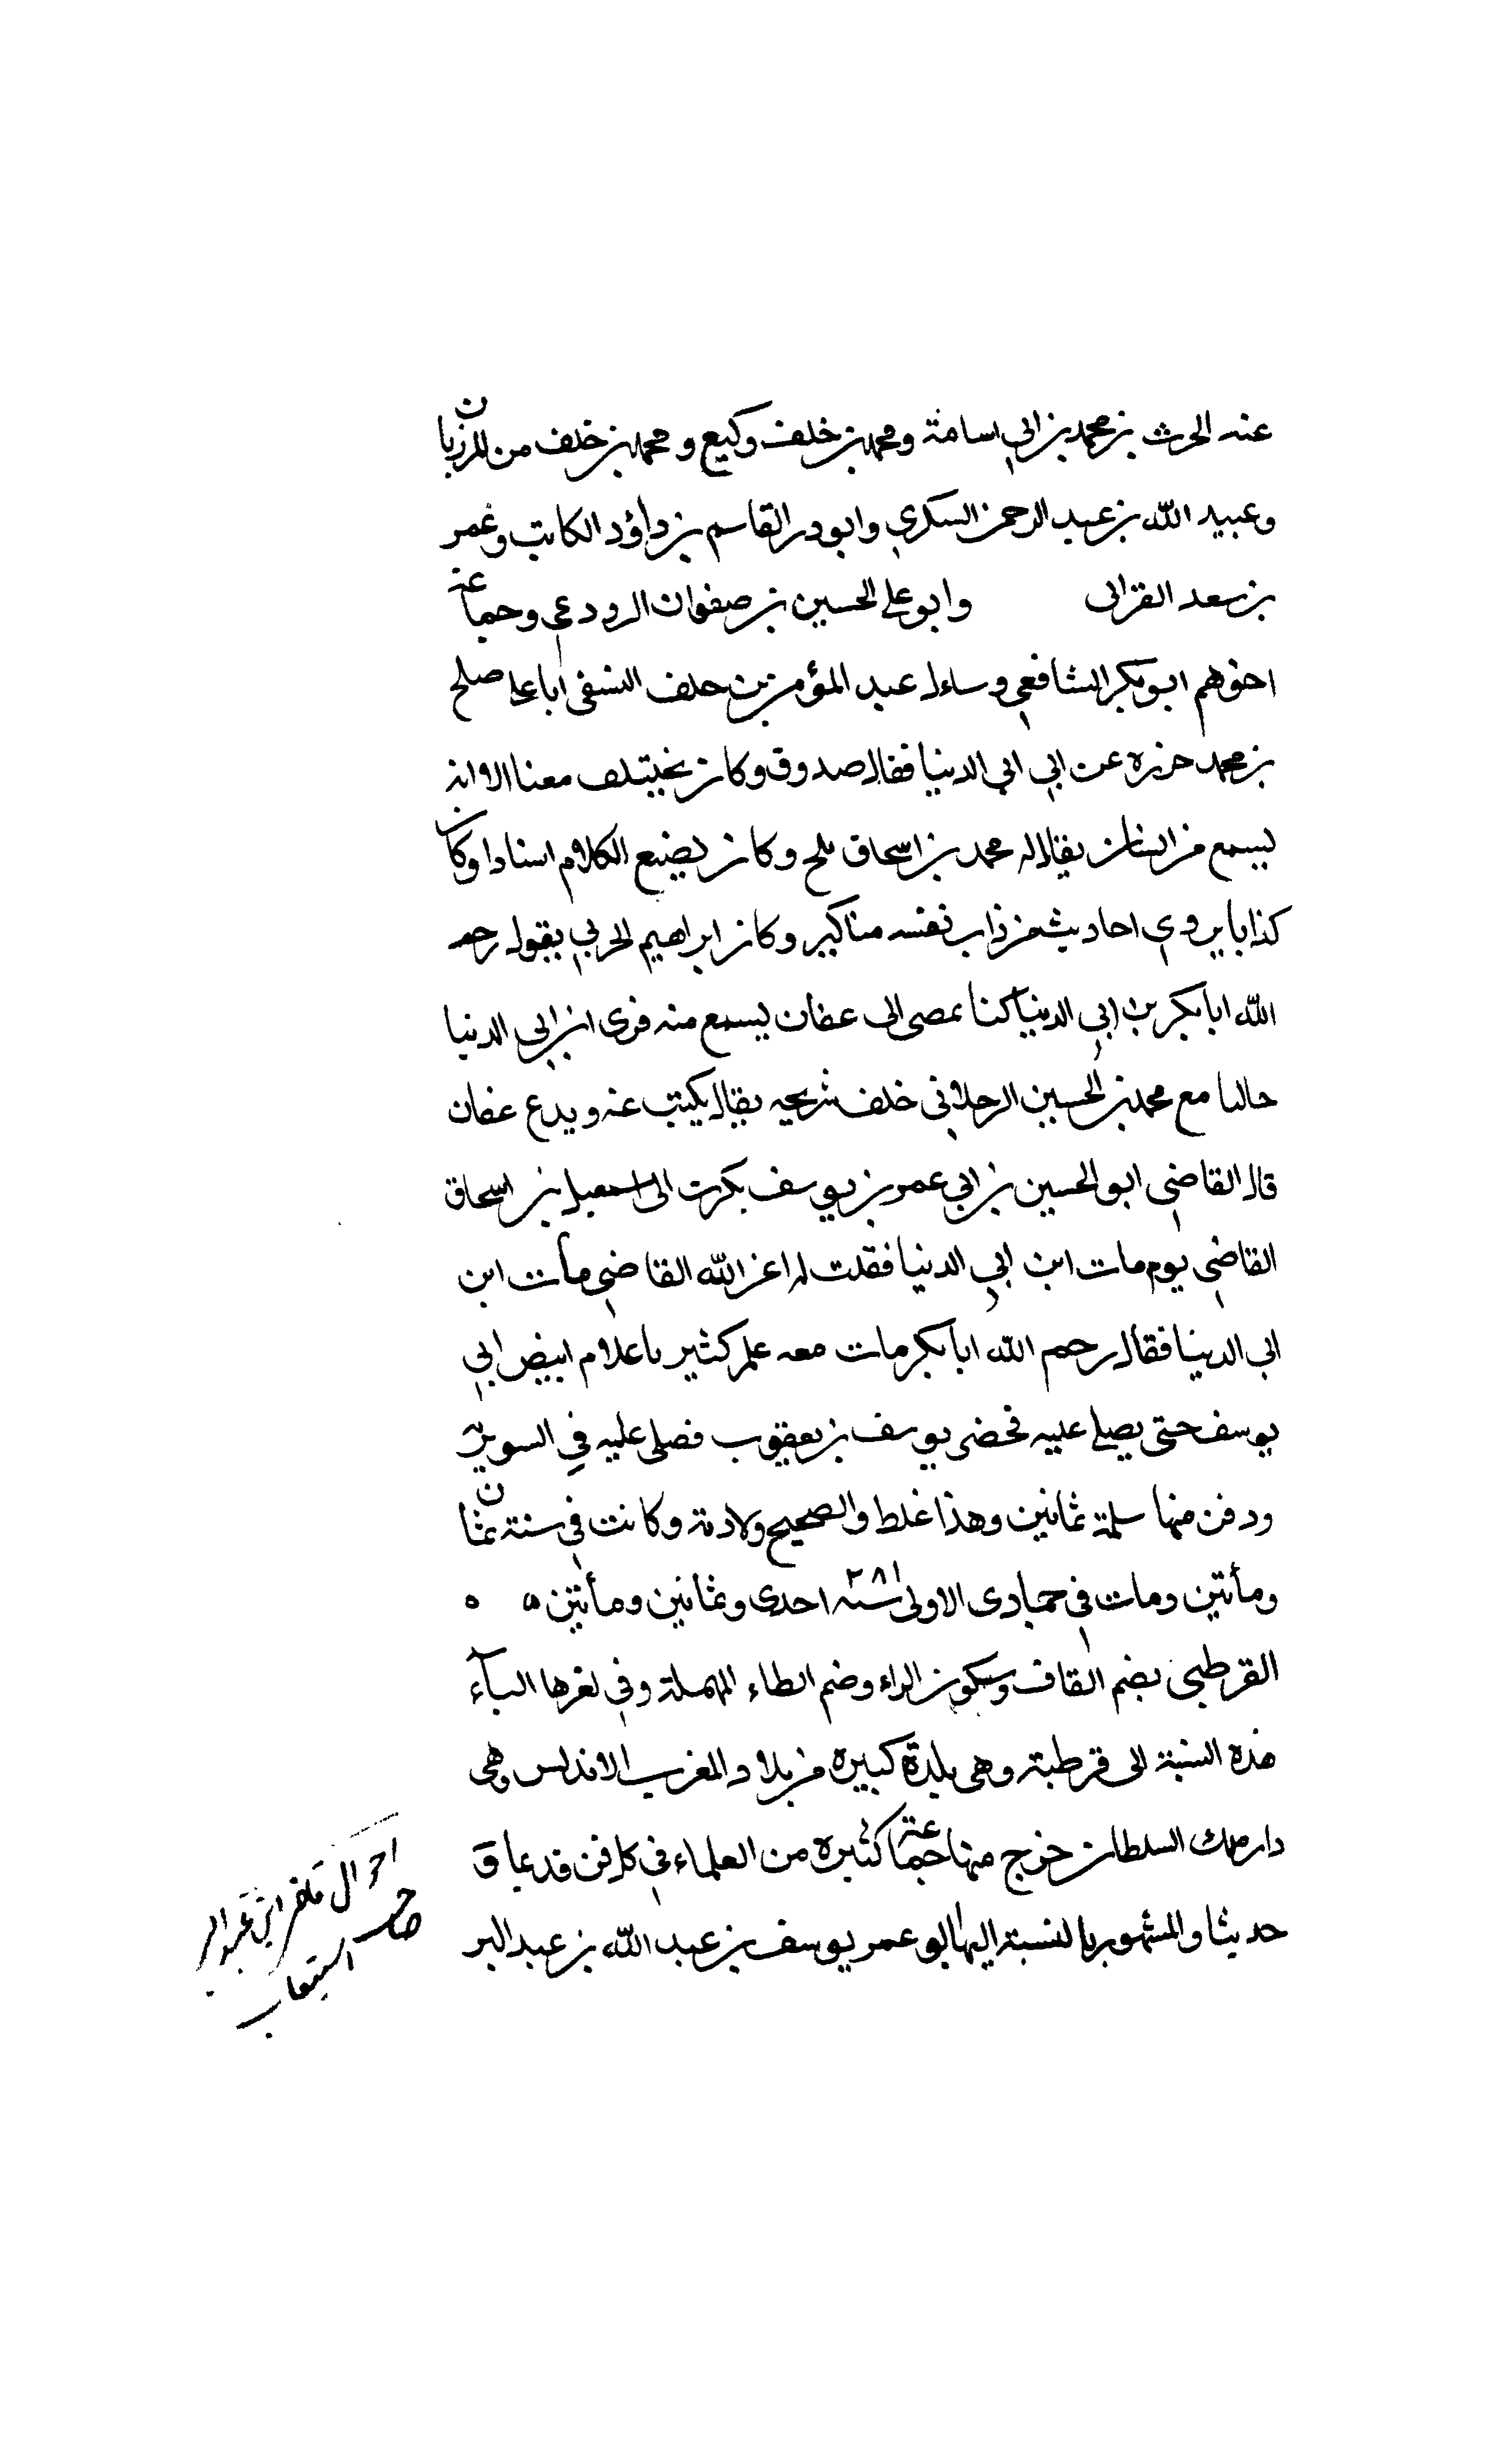 عنه الحرث بن محمد بن ابي اسامة ومحمد بن خلف وكيع و محمد بن خلف من المرزبان
وعبيد الله بن عبد الرحمن السكري وابو در القاسم بن داؤد الكاتب وعمر
بن سعد القراٮى وابو على الحسين بن صفوان الرودعى وجماعة
اخوهم ابو بكر الشافعي وساءل عبد المؤمن بن حلف النسفى ابا على صلح
بن محمد حزره عن ابي ابي الدنيا فقال صدوق وكان يختلف معنا الا انه
يسمع من انسان يقال له محمد بن اسحاق بلح وكان يضيع الكلام اسنادا وكان
كذابا يروي احاديث من ذاب نفسه مناكير وكان ابراهيم الحربي يقول رحمه
الله ابا بكر بن ابي الدنيا كنا نمصى الى عفان يسمع منه فرى ابن ابي الدنيا
حالسا مع محمد بن الحسين الرحلانى خلف شريحه بقال يكتب عنه ويدع عفان
قال القاضي ابو الحسين بن ابي عمر بن يوسف بكرت الى اسمعيل بن اسحاق
القاضي يوم مات ابن ابي الدنيا فقلت له اعز الله القاضي مات ابن
ابي الدنيا فقال رحم الله ابا بكر مات معه علم كثير ىاعلام ابيض ابي
يوسف حتى يصلى عليه فحضر يوسف بن يعقوب فصلى عليه في السويزية
ودفن منها سلمة ثمانين وهذا غلط والصحيح ولادته وكانت في سنة ثمان
ومأتين ومات في جمادى الاولى سنه ٢٨١ احدى وثمانين ومأتين ٥ ٥
القرطبى بضم القاف وسكون الراء وضم الطاء المهملة وفي لغرها البآء
هذه النسبة الى قرطبة وهى بلدة كبيرة من بلاد المغرب الاندلس وهى
دار ملك السلطان خرج منها جماعة كثيرة من العلماء في كل فن قدىما و
حديثا والمشهور بالنسبة اليها ابو عمر يوسف بن عبد الله بن عبد البر
احوال ابن عبد البر
صاحب
استيعاب